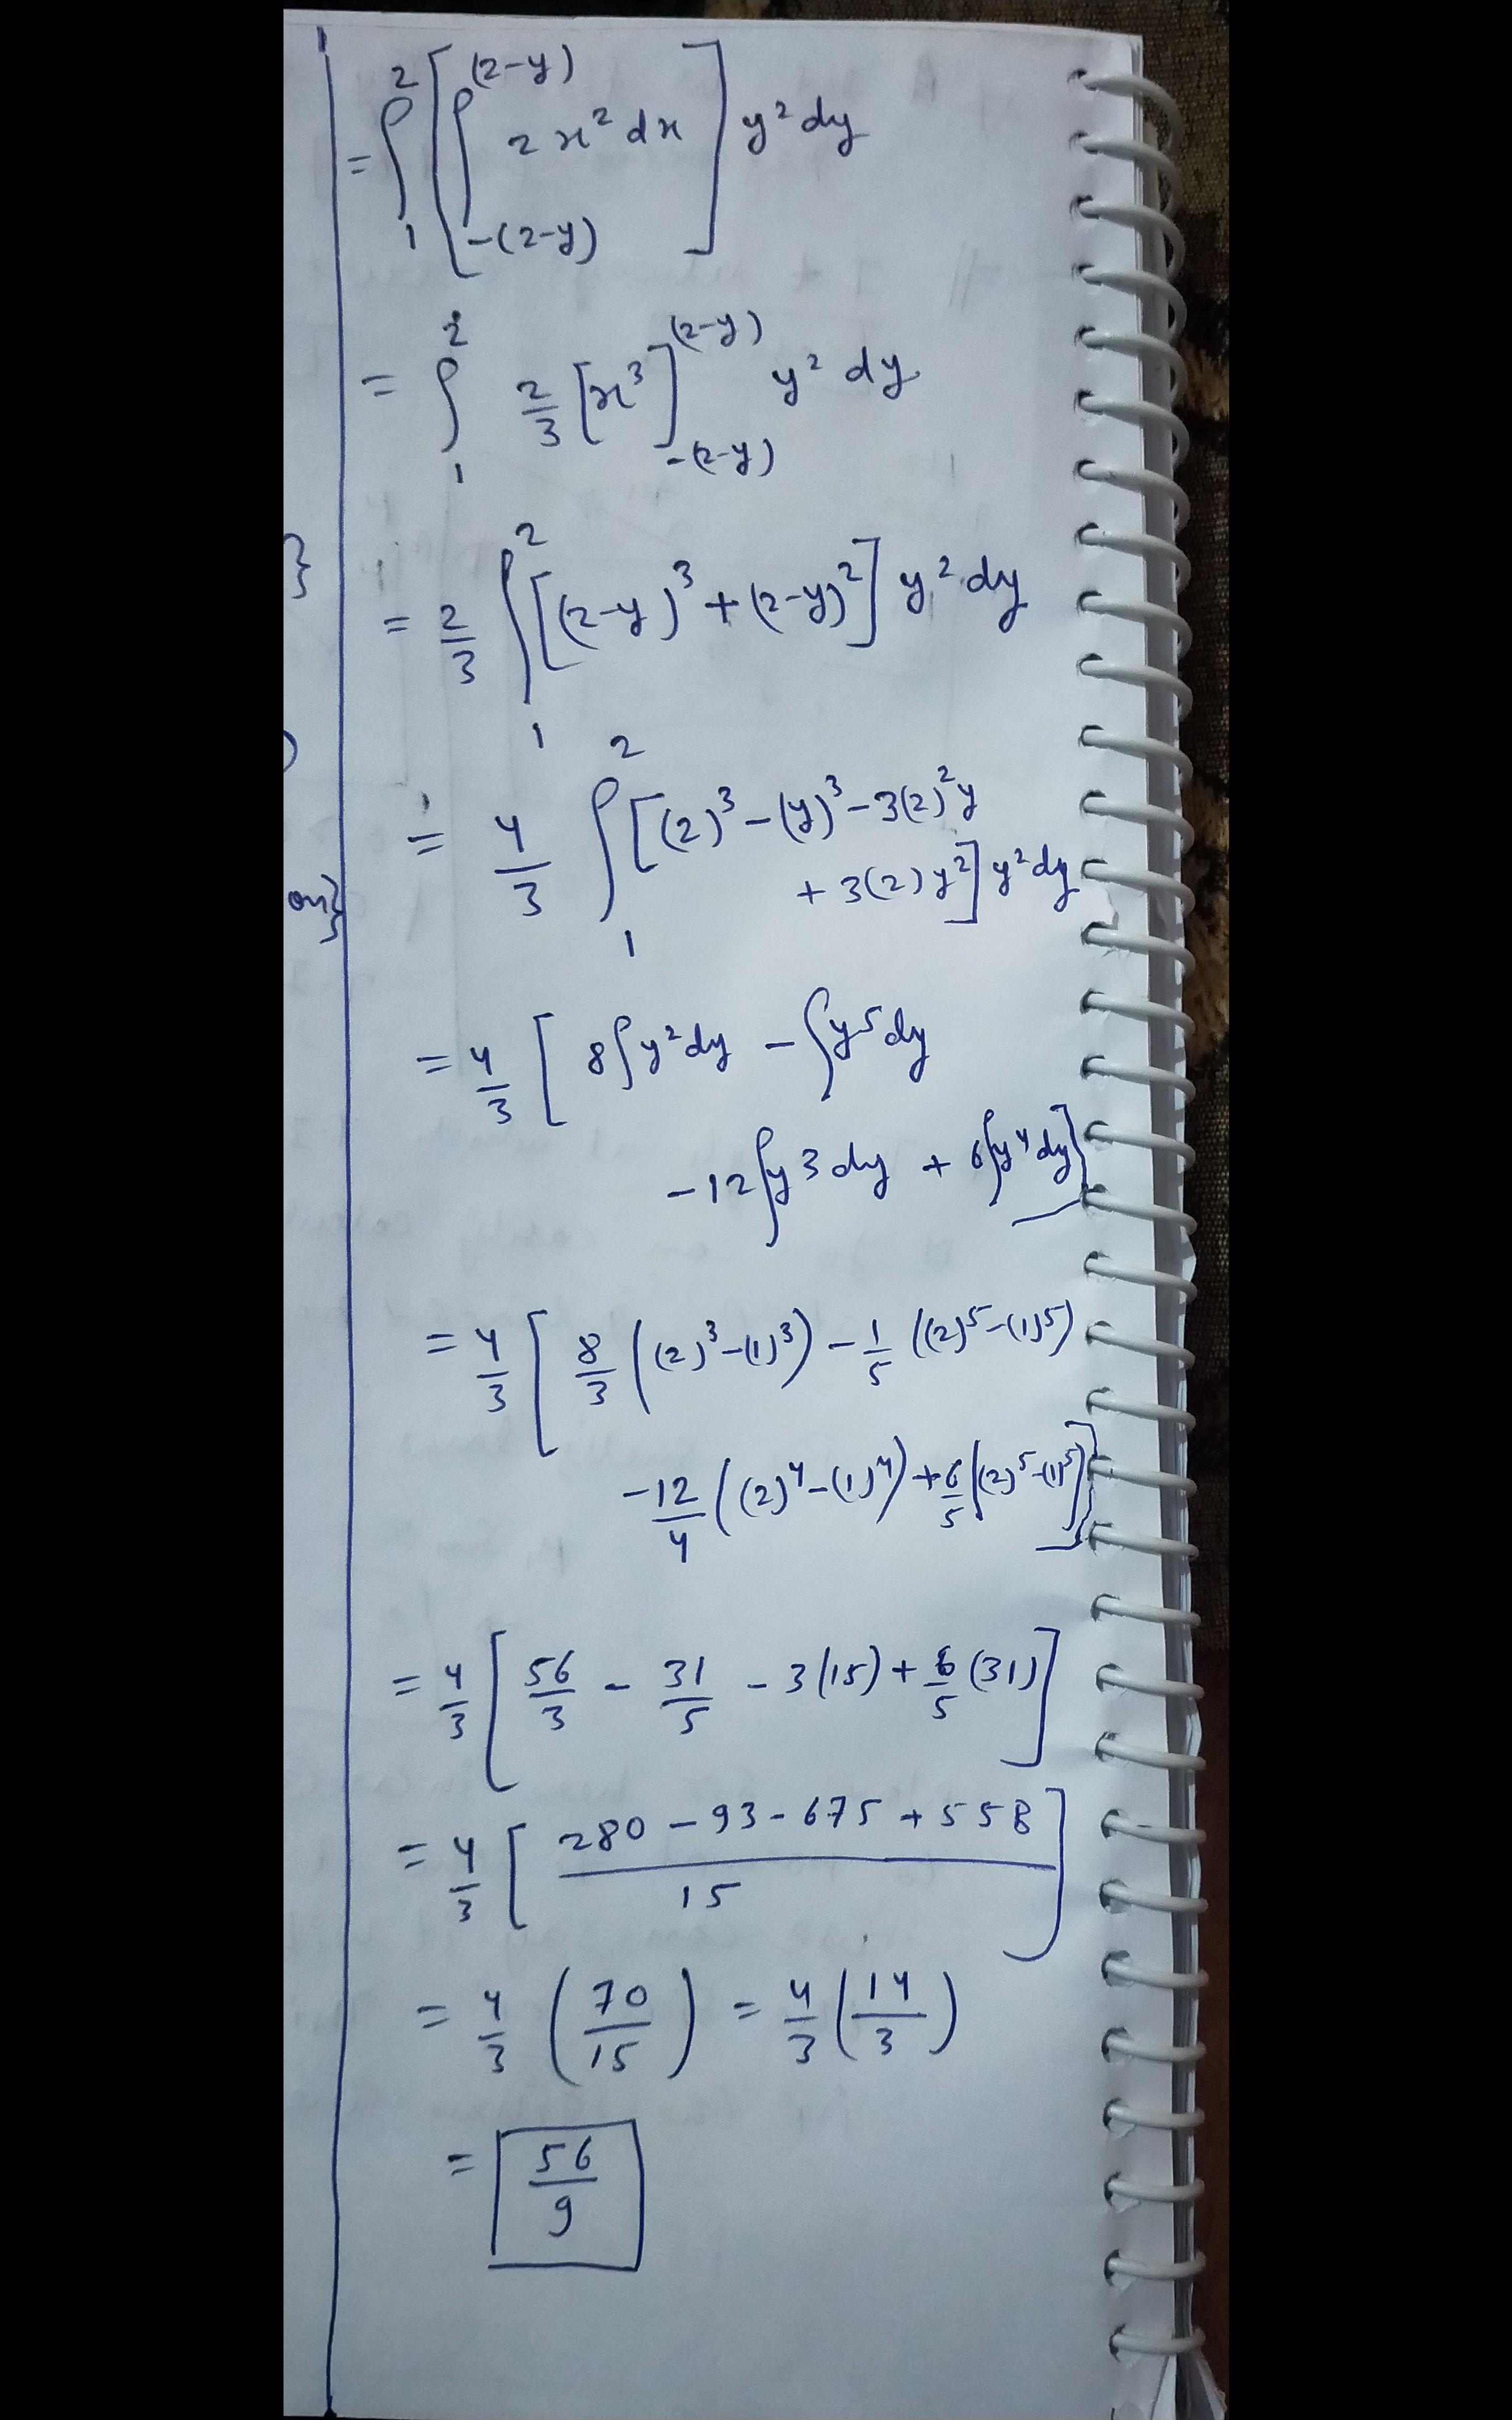 = ∫₁² [ ∫_{-(2-y)}^{(2-y)} 2x² dx ] y² dy
= ∫₁² 2/3 [x³]_{-(2-y)}^{(2-y)} y² dy
}
= 2/3 ∫₁² [(2-y)³ + (2-y)²] y² dy
= 4/3 ∫₁² [(2)³ - (y)³ - 3(2)²y
+ 3(2)y²] y² dy
on}
= 4/3 [ 8∫y² dy - ∫y⁵ dy
- 12∫y³ dy + 6∫y⁴ dy]
= 4/3 [ 8/3 ((2)³-(1)³) - 1/5 ((2)⁵-(1)⁵)
- 12/4 ((2)⁴-(1)⁴) + 6/5 ((2)⁵-(1)⁵)]
= 4/3 [ 56/3 - 31/5 - 3(15) + 6/5 (31)]
= 4/3 [ (280 - 93 - 675 + 558)/15 ]
= 4/3 (70/15) = 4/3 (14/3)
= 56/9